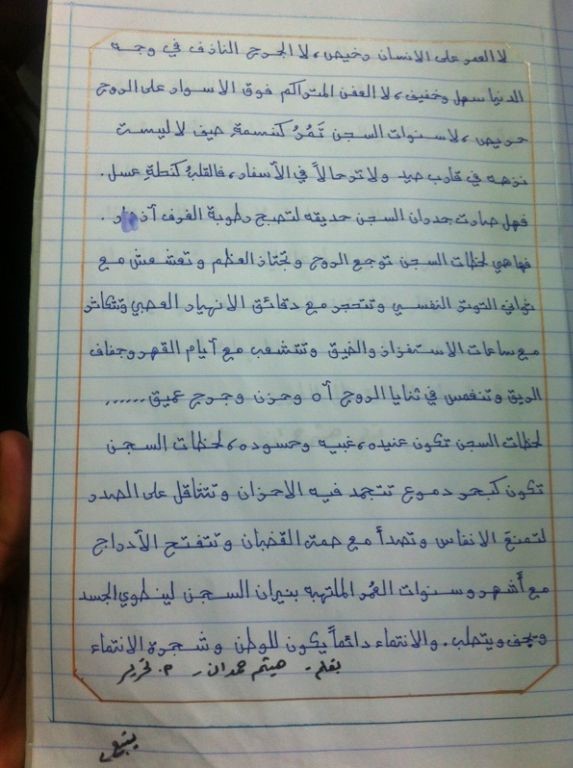 لا العمر على الانسان رخيص، لا الجرح النازف في وجه
الدنيا سهل وخفيف، لا العفن المتراكم فوق الاسوار على الروح
حريص، لا سنوات السجن تَمُرُ كنسمةِ صيف لا ليست
نزهه في قارب صيد ولا ترحالاً في الأسفار، فالقلب كنطةِ عسل.
فهل صارت جدران السجن حديقه لتصبح رطوبة الغرف
فها هي لحظات السجن توجع الروح وتجتاز العظم وتعشعش مع
ثواني التوتر النفسي وتتحجر مع دقائق الانهيار العصبي وتتكاثر
مع ساعات الاستفزاز والضيق وتتشعب مع أيام القهر وجفاف
الريق وتنغمس في ثنايا الروح أه وحزن وجرح عميق ......
لحظات السجن تكون عنيده، غبيه وحسوده، لحظات السجن
تكون كبحر دموع تتجمد فيه الاحزان وتتثاقل على الصدر
لتمنع الانفاس وتصدأ مع صمة القضبان وتتفتح الأدواج
مع أشهر وسنوات العُمر الملتهبه بنيران السجن لينطوي الجسد
ويجف ويتصلب. والانتماء دائماً يكون للوطن وشجرة الانتماء
بقلم - هيثم حمدان - م. تحرير
يتبع